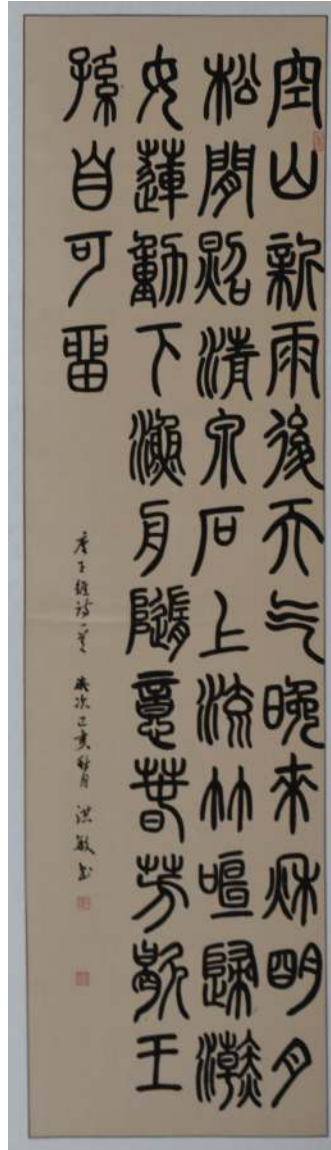 空山新雨後天气晚來秋明月
松間照清泉石上流竹喧歸浣
女蓮動下漁舟隨意春芳歇王
孫自可留
唐王維詩一首 歲次己亥秋月 洪敏书